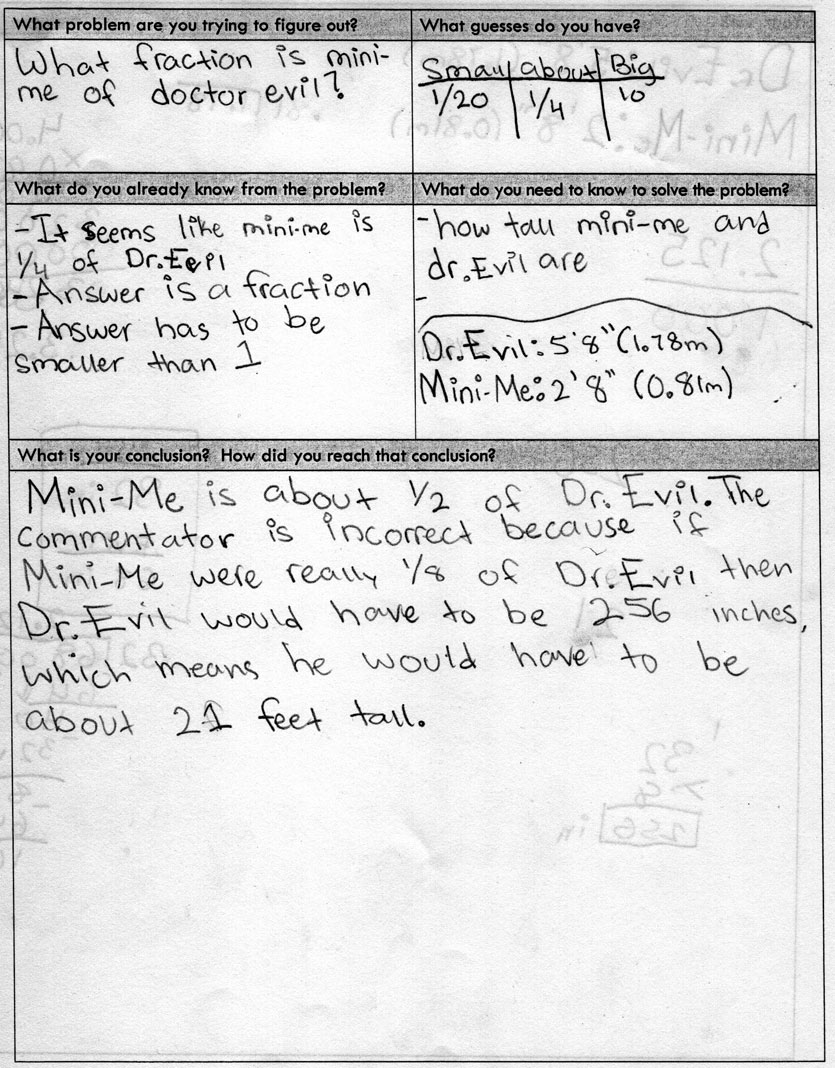 What problem are you trying to figure out?
What fraction is mini-
me of doctor evil?
What guesses do you have?
Small about Big
1/20 1/4 10
What do you already know from the problem?
-It seems like mini-me is
1/4 of Dr.
- Answer is a fraction
- Answer has to be
smaller than 1
What do you need to know to solve the problem?
-how tall mini-me and
dr.Evil are
-
Dr.Evil: 5'8" (1.78m)
Mini-Me: 2'8" (0.81m)
What is your conclusion? How did you reach that conclusion?
Mini-Me is about 1/2 of Dr. Evil. The
commentator is incorrect because if
Mini-Me were really 1/8 of Dr.Evil then
Dr.Evil would have to be 256 inches,
which means he would have to be
about 21 feet tall.